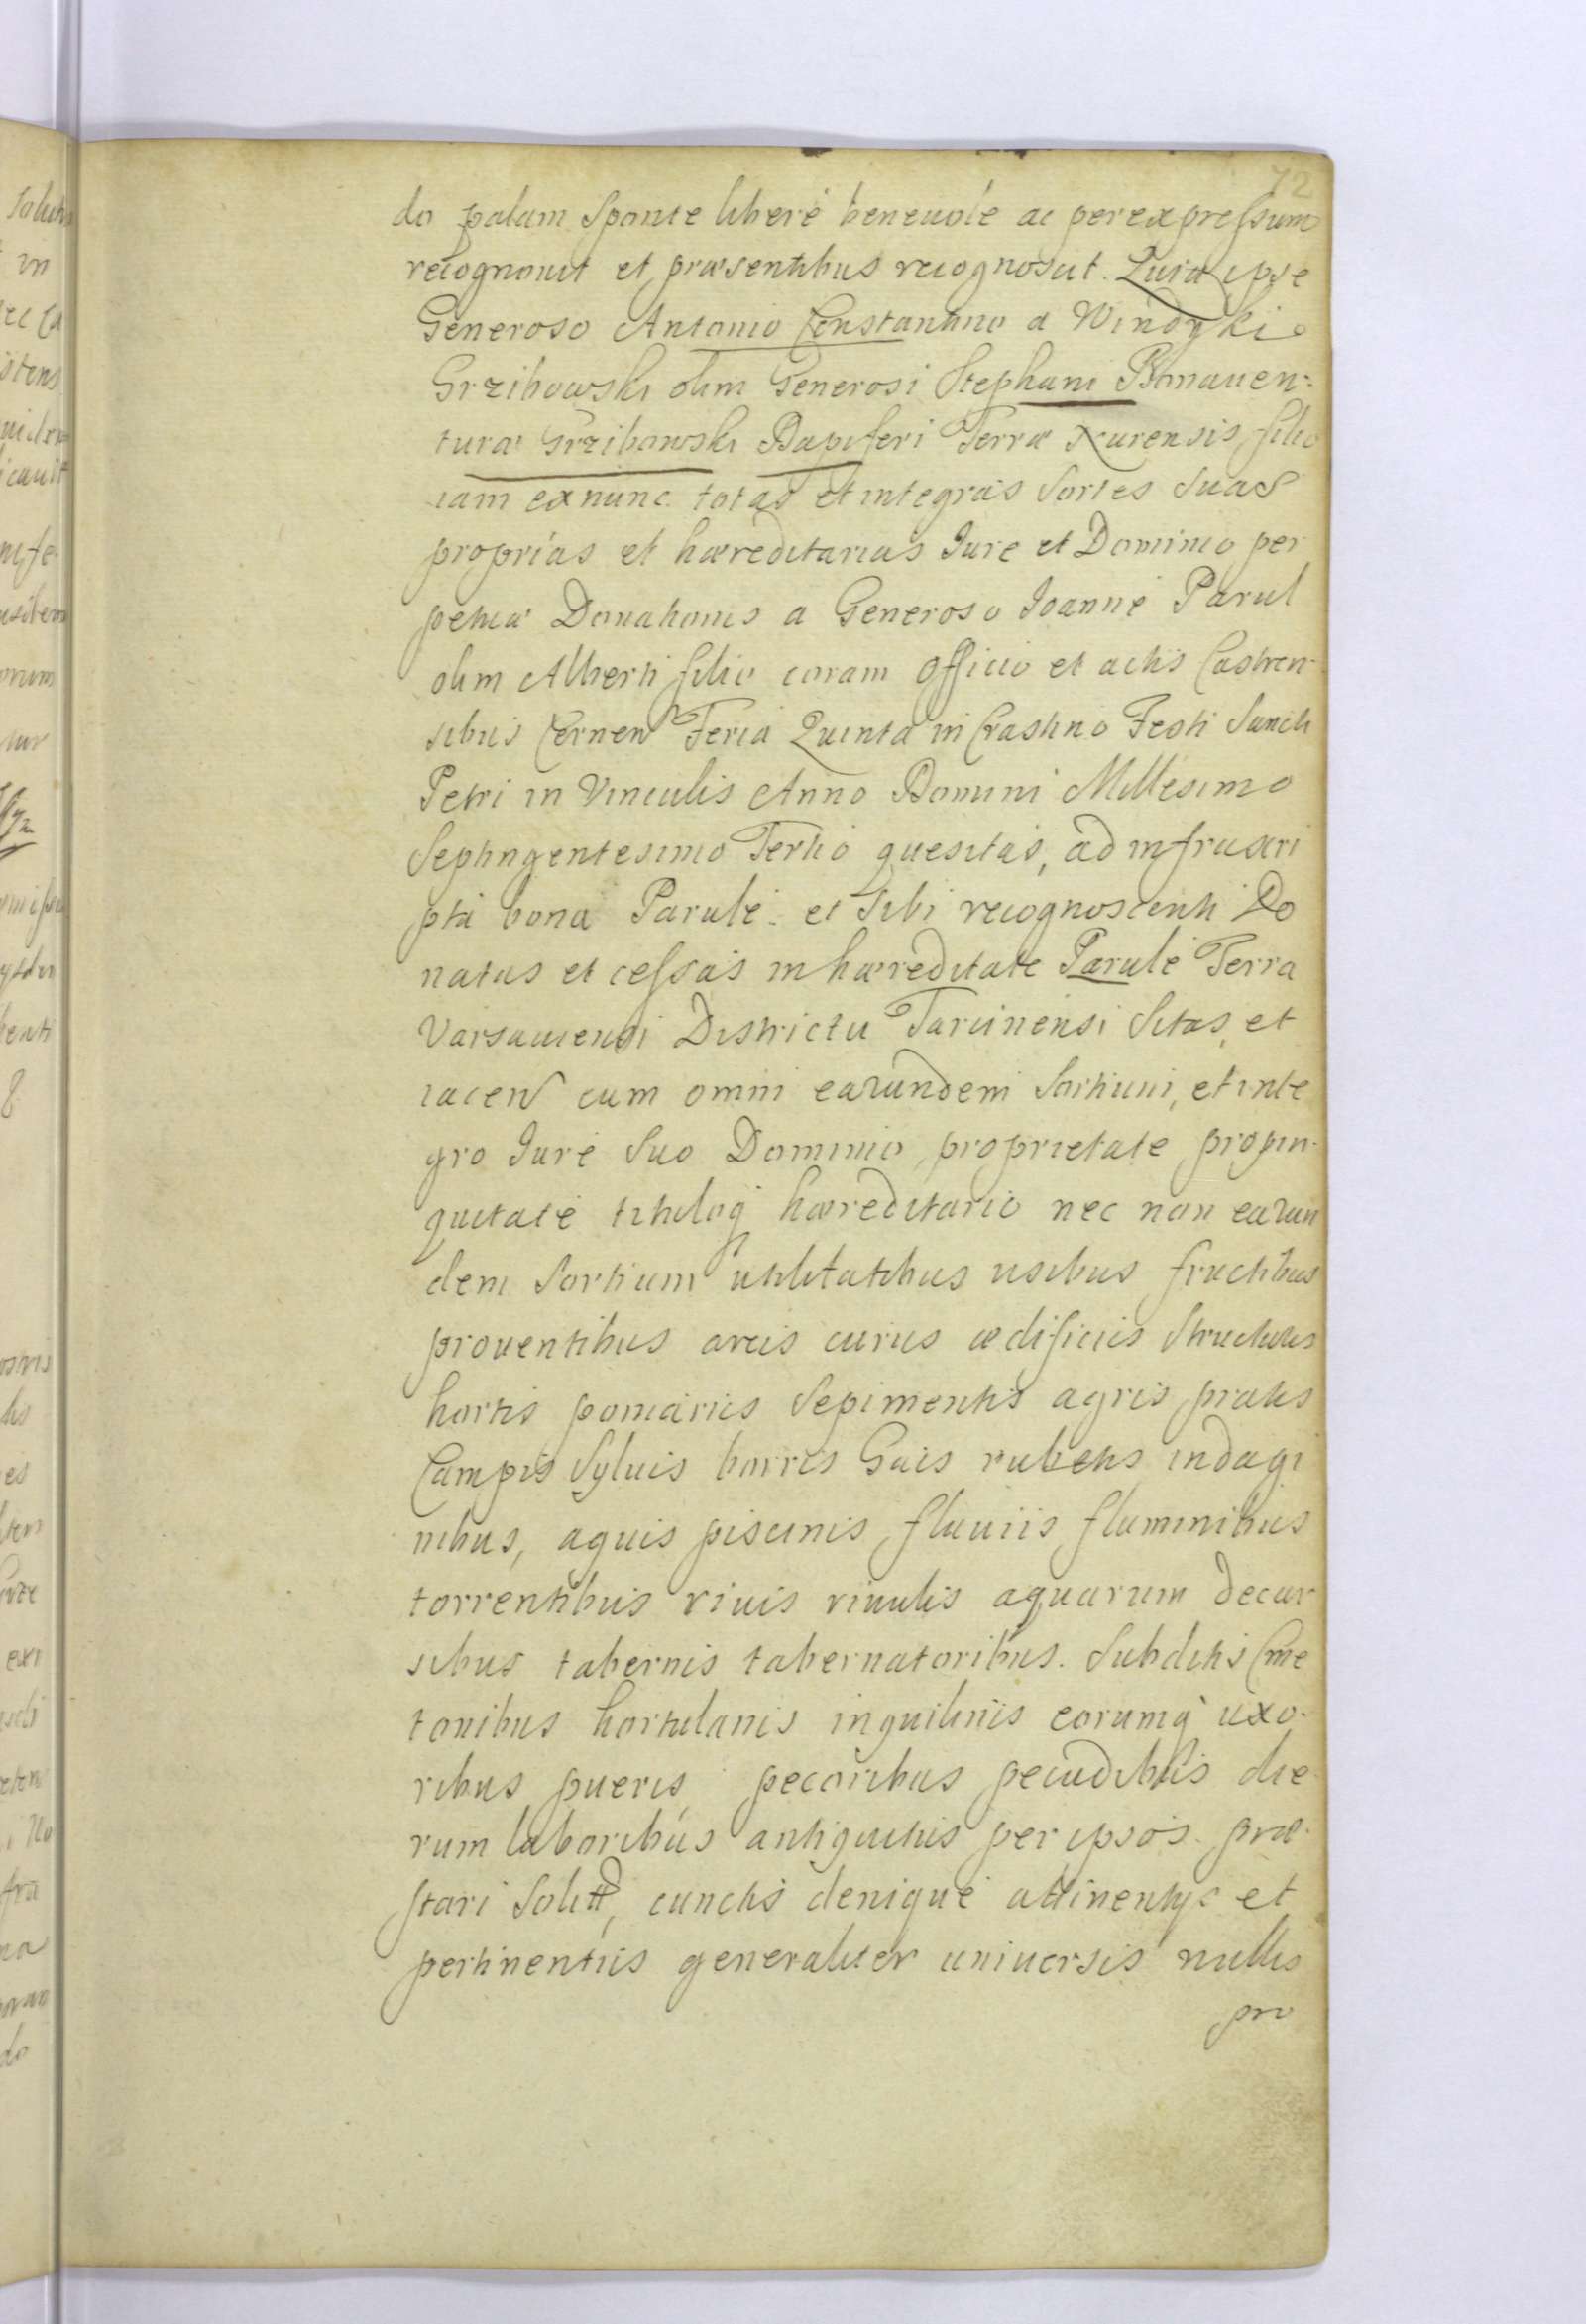 72
do palam Sponte liberè beneuolè ac per expressum
recognouit et præsentibus recognoscit. Quia ipse
Generoso Antonio Constantino a Windyki
Grzibowski olim Generosi Stephani Bonauen-
turæ Grzibowski Dapiferi Terræ Nurensis filio
iam ex nunc totas et integras Sortes Suas
proprias et hæreditarias Iure et Dominio per
petuæ Donationis a Generoso Ioanne Parul
olim Alberti filio coram Officio et actis Castren-
sibus Cernen Feria Quinta in Crastino Festi Sancti
Petri in Vinculis Anno Domini Millesimo
Septingentesimo Tertio quesitas, ad infrascri
pta bona Parule et Sibi recognoscenti Do
natas et cessas in hæreditate Parule Terra
Varsauiensi Districtu Tarcinensi Sitas, et
iacen cum omni earundem Sortium, et inte
gro Iure Suo Dominio, proprietate propin-
quitate tituloq hæreditario nec non earun
dem Sortium utilitatibus usibus fructibus
prouentibus areis curiis ædificiis Structuris
hortis pomariis Sepimentis agris pratis
Campis Syluis borris Gais rubetis indagi
nibus, aquis piscinis fluuiis fluminibus
torrentibus riuis riuulis aquarum decur
sibus tabernis tabernatoribus. Subditis Cme
tonibus hortulanis inquilinis eorumq uxo-
ribus pueris pecoribus pecudibus die
rum laboribus antiquitus per ipsos præ-
stari Solit, cunctis denique attinentys et
pertinentiis generaliter uniuersis nullis
pro